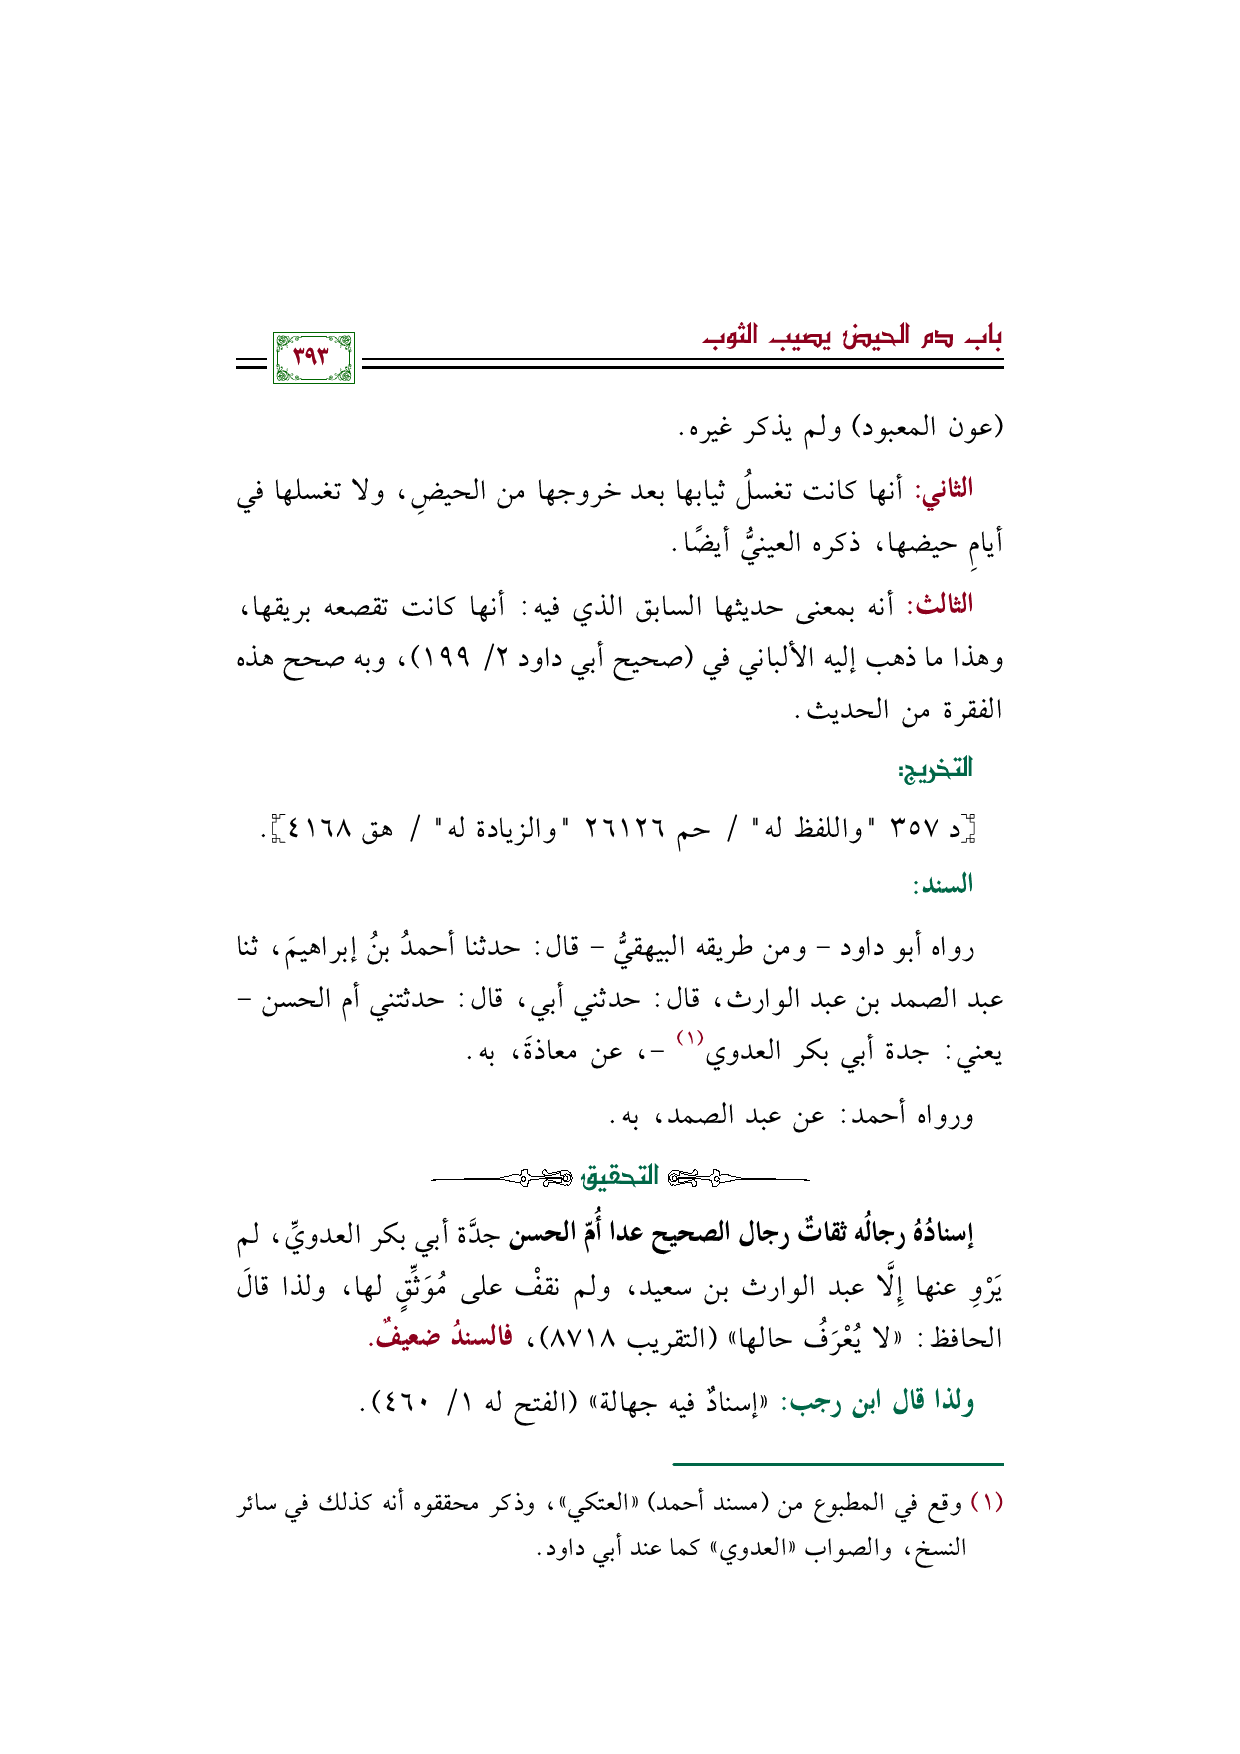 باب دم الحيض يصيب الثوب
٣٩٣
(عون المعبود) ولم يذكر غيره.
الثاني: أنها كانت تغسلُ ثيابها بعد خروجها من الحيضِ، ولا تغسلها في
أيامِ حيضها، ذكره العينيُّ أيضًا.
الثالث: أنه بمعنى حديثها السابق الذي فيه: أنها كانت تقصعه بريقها،
وهذا ما ذهب إليه الألباني في (صحيح أبي داود ٢/ ١٩٩)، وبه صحح هذه
الفقرة من الحديث.
التخريج:
[د ٣٥٧ "واللفظ له" / حم ٢٦١٢٦ "والزيادة له" / هق ٤١٦٨].
السند:
رواه أبو داود – ومن طريقه البيهقيُّ – قال: حدثنا أحمدُ بنُ إبراهيمَ، ثنا
عبد الصمد بن عبد الوارث، قال: حدثني أبي، قال: حدثتني أم الحسن –
يعني: جدة أبي بكر العدوي(١) –، عن معاذةَ، به.
ورواه أحمد: عن عبد الصمد، به.
التحقيق
إسنادُهُ رجالُه ثقاتٌ رجال الصحيح عدا أُمّ الحسن جدَّة أبي بكر العدويِّ، لم
يَرْوِ عنها إِلَّا عبد الوارث بن سعيد، ولم نقفْ على مُوَثِّقٍ لها، ولذا قالَ
الحافظ: «لا يُعْرَفُ حالها» (التقريب ٨٧١٨)، فالسندُ ضعيفٌ.
ولذا قال ابن رجب: «إسنادٌ فيه جهالة» (الفتح له ١/ ٤٦٠).
(١) وقع في المطبوع من (مسند أحمد) «العتكي»، وذكر محققوه أنه كذلك في سائر
النسخ، والصواب «العدوي» كما عند أبي داود.